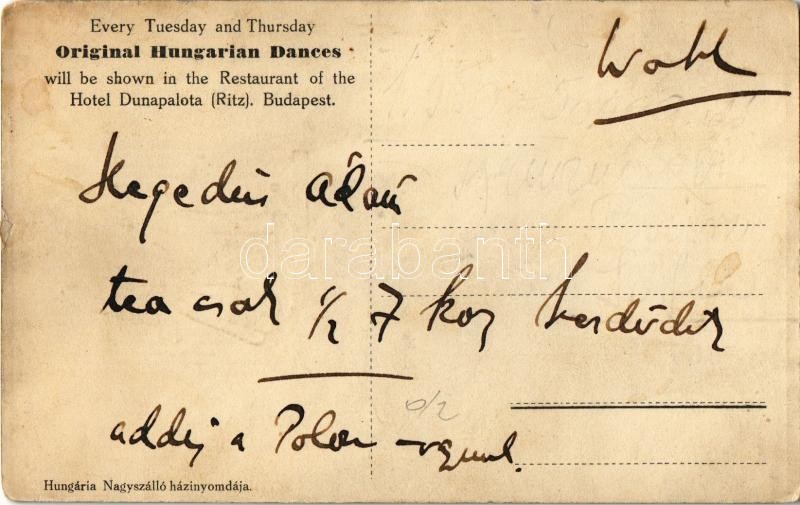 Every Tuesday and Thursday
Original Hungarian Dances
will be shown in the Restaurant of the
Hotel Dunapalota (Ritz). Budapest.
Wohl
Hegedüs Ádám
darabanth
tea csak 1/2 7 kor kezdődik
addig a
Hungária Nagyszálló házinyomdája.